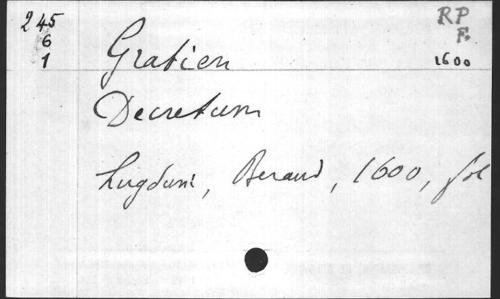 245
6
1
RP
F.
1600
Gratien
Decretum
Lugduni, Beraud, 1600, fol